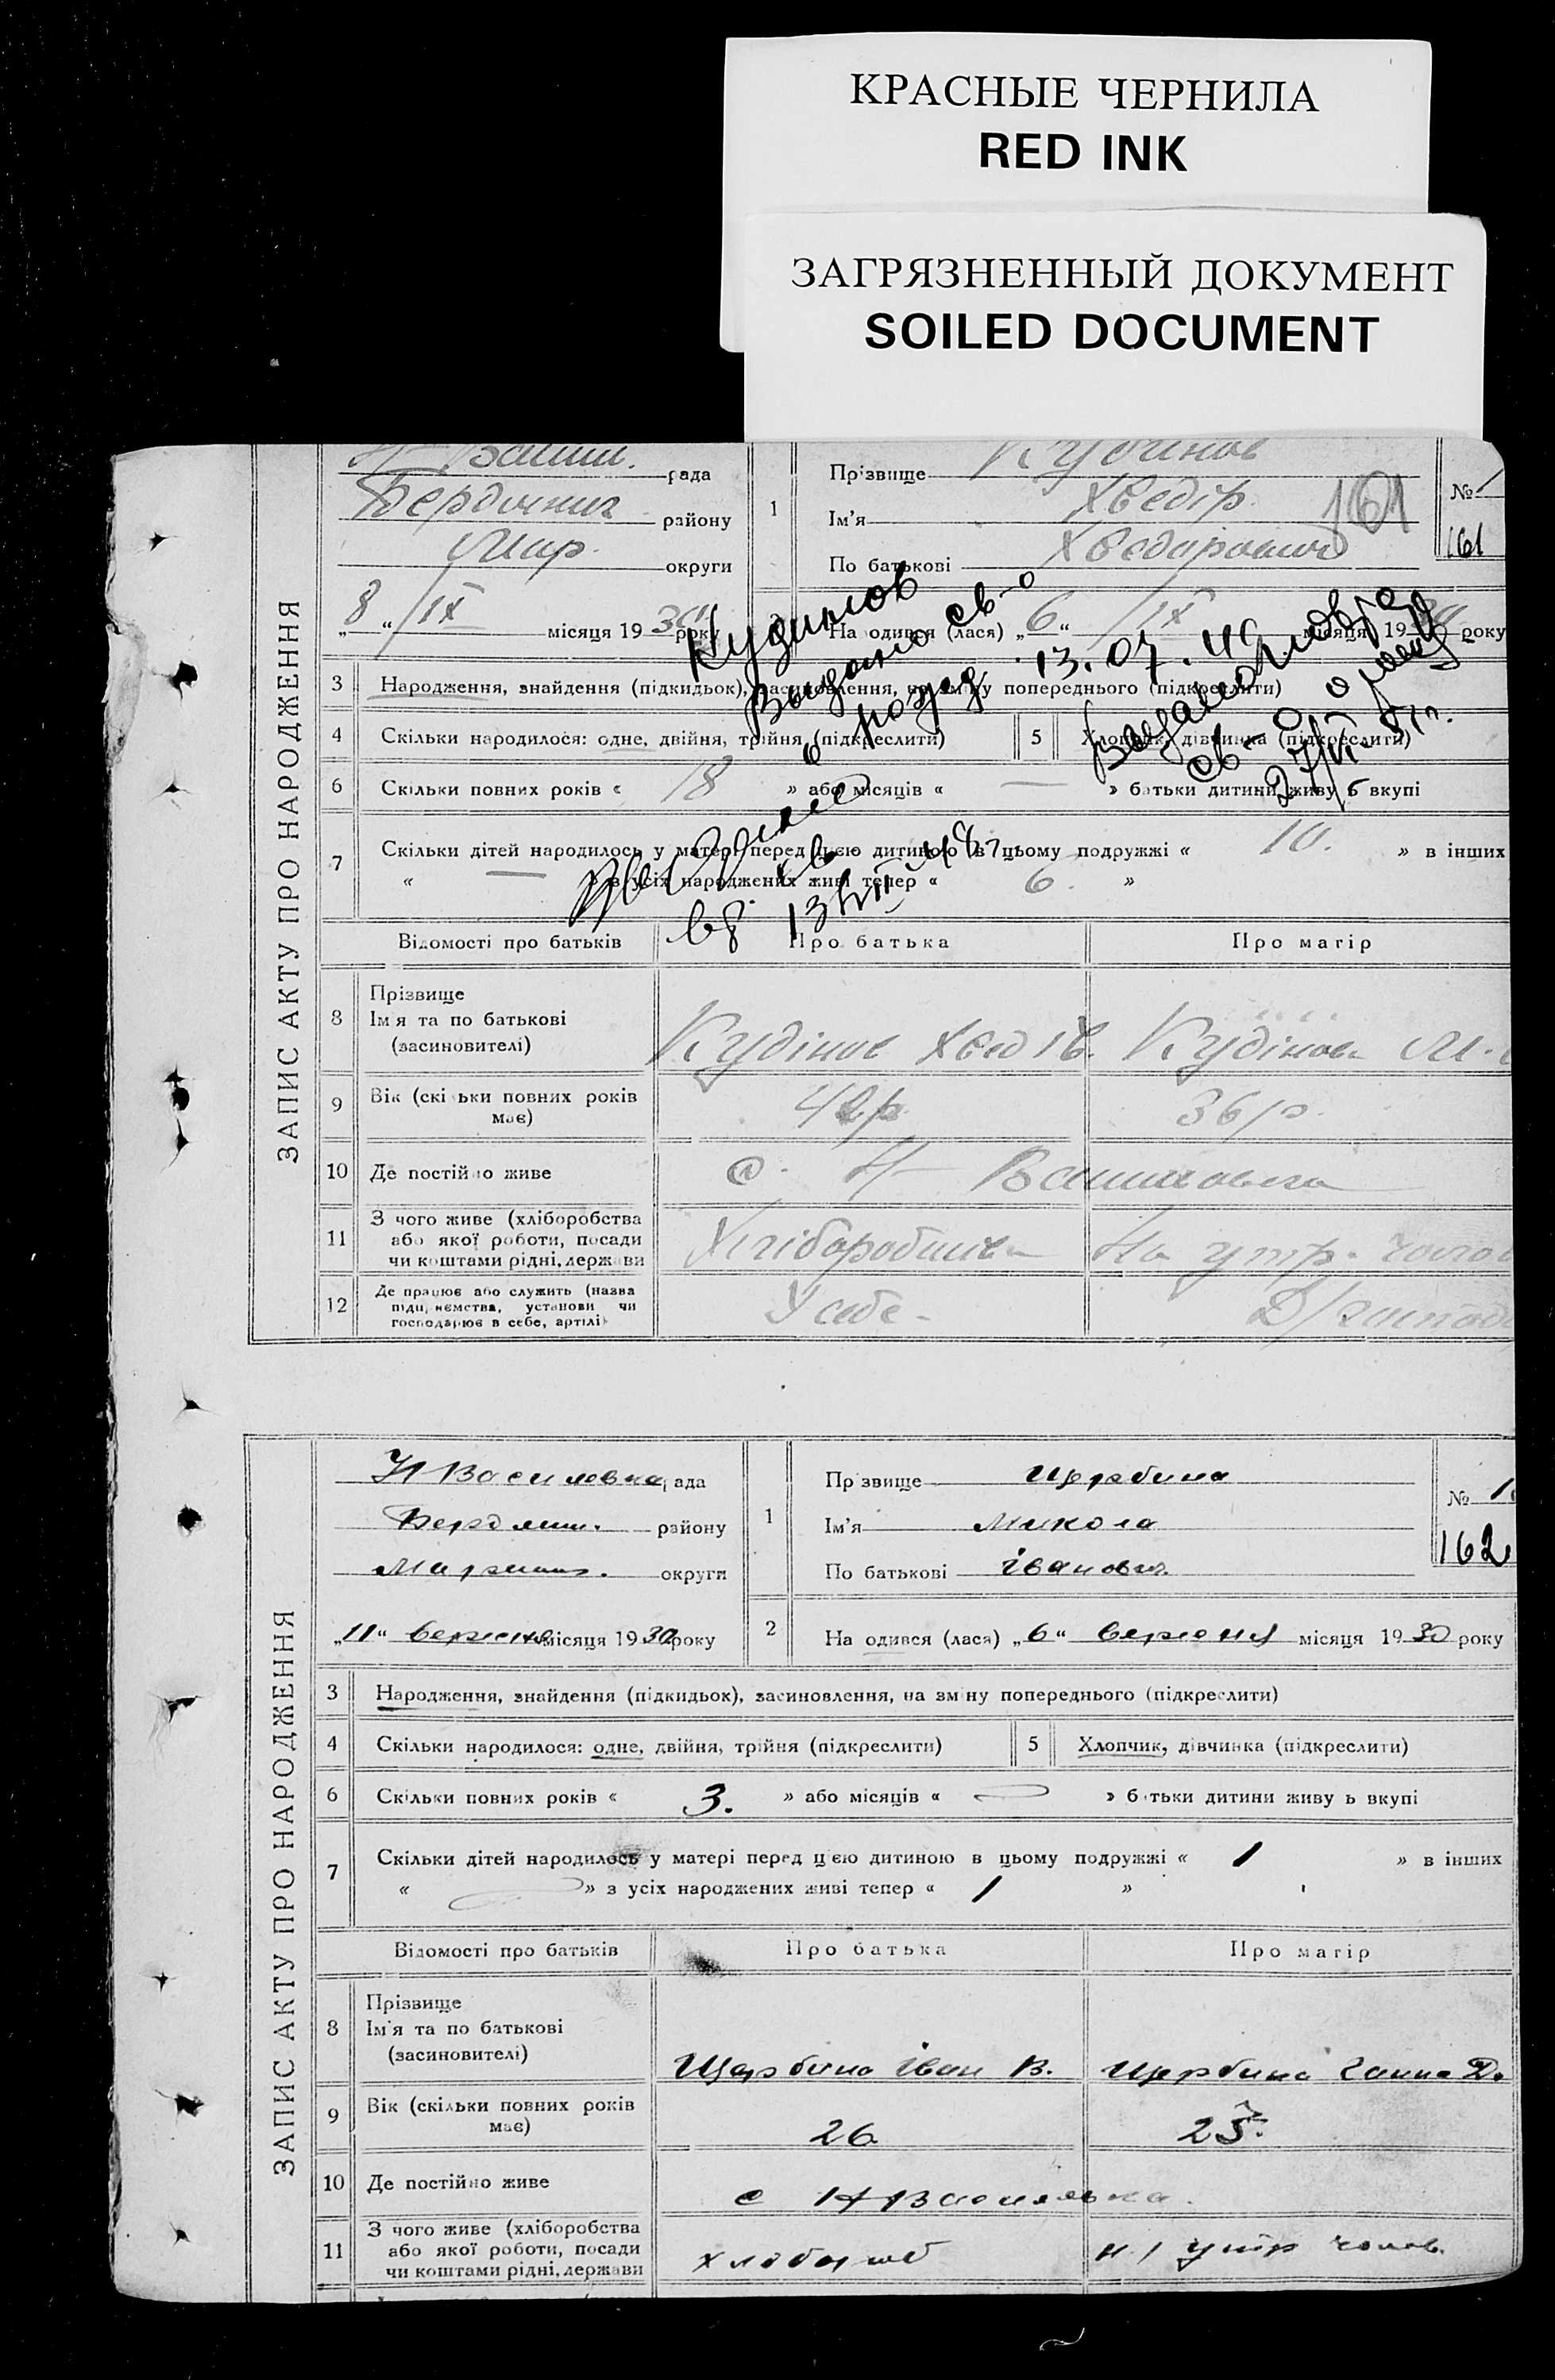 КРАСНЫЕ ЧЕРНИЛА
RED INK
ЗАГРЯЗНЕННЫЙ ДОКУМЕНТ
SOILED DOCUMENT
ЗАПИС АКТУ ПРО НАРОДЖЕННЯ
рада
району
округи
„8“ /IX місяця 1930 року
1
Прізвище Кудинов
Ім'я Хведір
По батькові Хведорович
161
№ 1
161
На одився (лася) „6“ /IX місяця 1930 року
Кудинов
Выдано св-о
о рожд. 13.07.49
3 Народження, знайдення (підкидьок), засиновлення, на зміну попереднього (підкреслити)
4 Скільки народилося: одне, двійня, трійня (підкреслити)
5 Хлопчик, дівчинка (підкреслити)
6 Скільки повних років « 18 » або місяців « — » батьки дитини живу ь вкупі
7 Скільки дітей народилось у матері перед цією дитиною в цьому подружжі « 10. » в інших
« — » з усіх народжених живі тепер « 6. »
Відомості про батьків
Про батька
Про матір
8 Прізвище
Ім'я та по батькові
(засиновителі)
Кудінов Хвед Ів.
Кудінова М.
9 Вік (скі ьки повних років
має)
42р
36р.
10 Де постійно живе
с. Н-
11 З чого живе (хліборобства
або якої роботи, посади
чи коштами рідні, держави
На утр. чолов
12 Де працює або служить (назва
підп иємства, установи чи
господарює в себе, артілі)
У себе -
Д/господ
ЗАПИС АКТУ ПРО НАРОДЖЕННЯ
Н Василевка рада
району
округи
„11“ вересня місяця 1930 року
1
Пр звище Щербина
Ім'я Микола
По батькові Іванович
№ 1
162
2 На одився (лася) „6“ вересня місяця 1930 року
3 Народження, знайдення (підкидьок), засиновлення, на зм ну попереднього (підкреслити)
4 Скільки народилося: одне, двійня, трійня (підкреслити)
5 Хлопчик, дівчинка (підкреслити)
6 Скільки повних років « 3. » або місяців « — » б тьки дитини живу ь вкупі
7 Скільки дітей народилось у матері перед цією дитиною в цьому подружжі « 1 » в інших
« — » з усіх народжених живі тепер « 1 »
Відомості про батьків
Про батька
Про матір
8 Прізвище
Ім'я та по батькові
(засиновителі)
Щербина Іван В.
Щербина Ганна Д.
9 Вік (скільки повних років
має)
26
25.
10 Де постійно живе
с Н Василевка.
11 З чого живе (хліборобства
або якої роботи, посади
чи коштами рідні, держави
утр чолов.